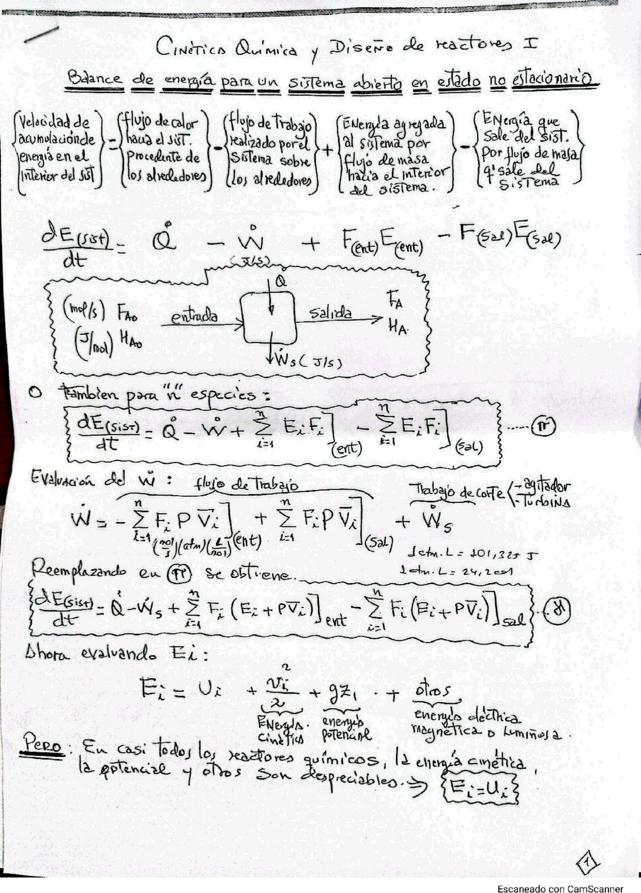 Cinética Química y Diseño de reactores I
Balance de energía para un sistema abierto en estado no estacionario
{Velocidad de acumulación de energía en el interior del sist} = {flujo de calor hacia el sist. procedente de los alrededores} - {flujo de Trabajo realizado por el sistema sobre los alrededores} + {ENergía agregada al sistema por flujo de masa hacia el interior del sistema.} - {ENergía que sale del sist. por flujo de masa q' sale del sistema}
dE(sist)/dt = Q̇ - Ẇ + F(ent) E(ent) - F(sal) E(sal)
(J/s)
Q
(mol/s) F_A0 entrada salida F_A
(J/mol) H_A0 H_A
Ẇs (J/s)
O También para "n" especies:
dE(sist)/dt = Q̇ - Ẇ + Σ_{i=1}^{n} E_i F_i](ent) - Σ_{i=1}^{n} E_i F_i](sal) ......(π)
Evaluación del Ẇ : flujo de Trabajo
Trabajo de corte < - agitador - Turbina
Ẇ = - Σ_{i=1}^{n} F_i P V̄_i](ent) + Σ_{i=1}^{n} F_i P V̄_i](sal) + Ẇs
(mol/s)(atm)(L/mol)
1 atm.L = 101,325 J
1 atm.L = 24,2
Reemplazando en (π) se obtiene.
dE(sist)/dt = Q̇ - Ẇs + Σ_{i=1}^{n} F_i (E_i + PV̄_i)]ent - Σ_{i=1}^{n} F_i (E_i + PV̄_i)]sal
Ahora evaluando E_i :
E_i = U_i + v_i²/2 + gz_i + otros
ENergía cinética energía potencial energía eléctrica magnética o luminosa.
Pero: En casi todos los reactores químicos, la energía cinética,
la potencial y otros son despreciables. ⇒ {E_i = U_i}
1
Escaneado con CamScanner